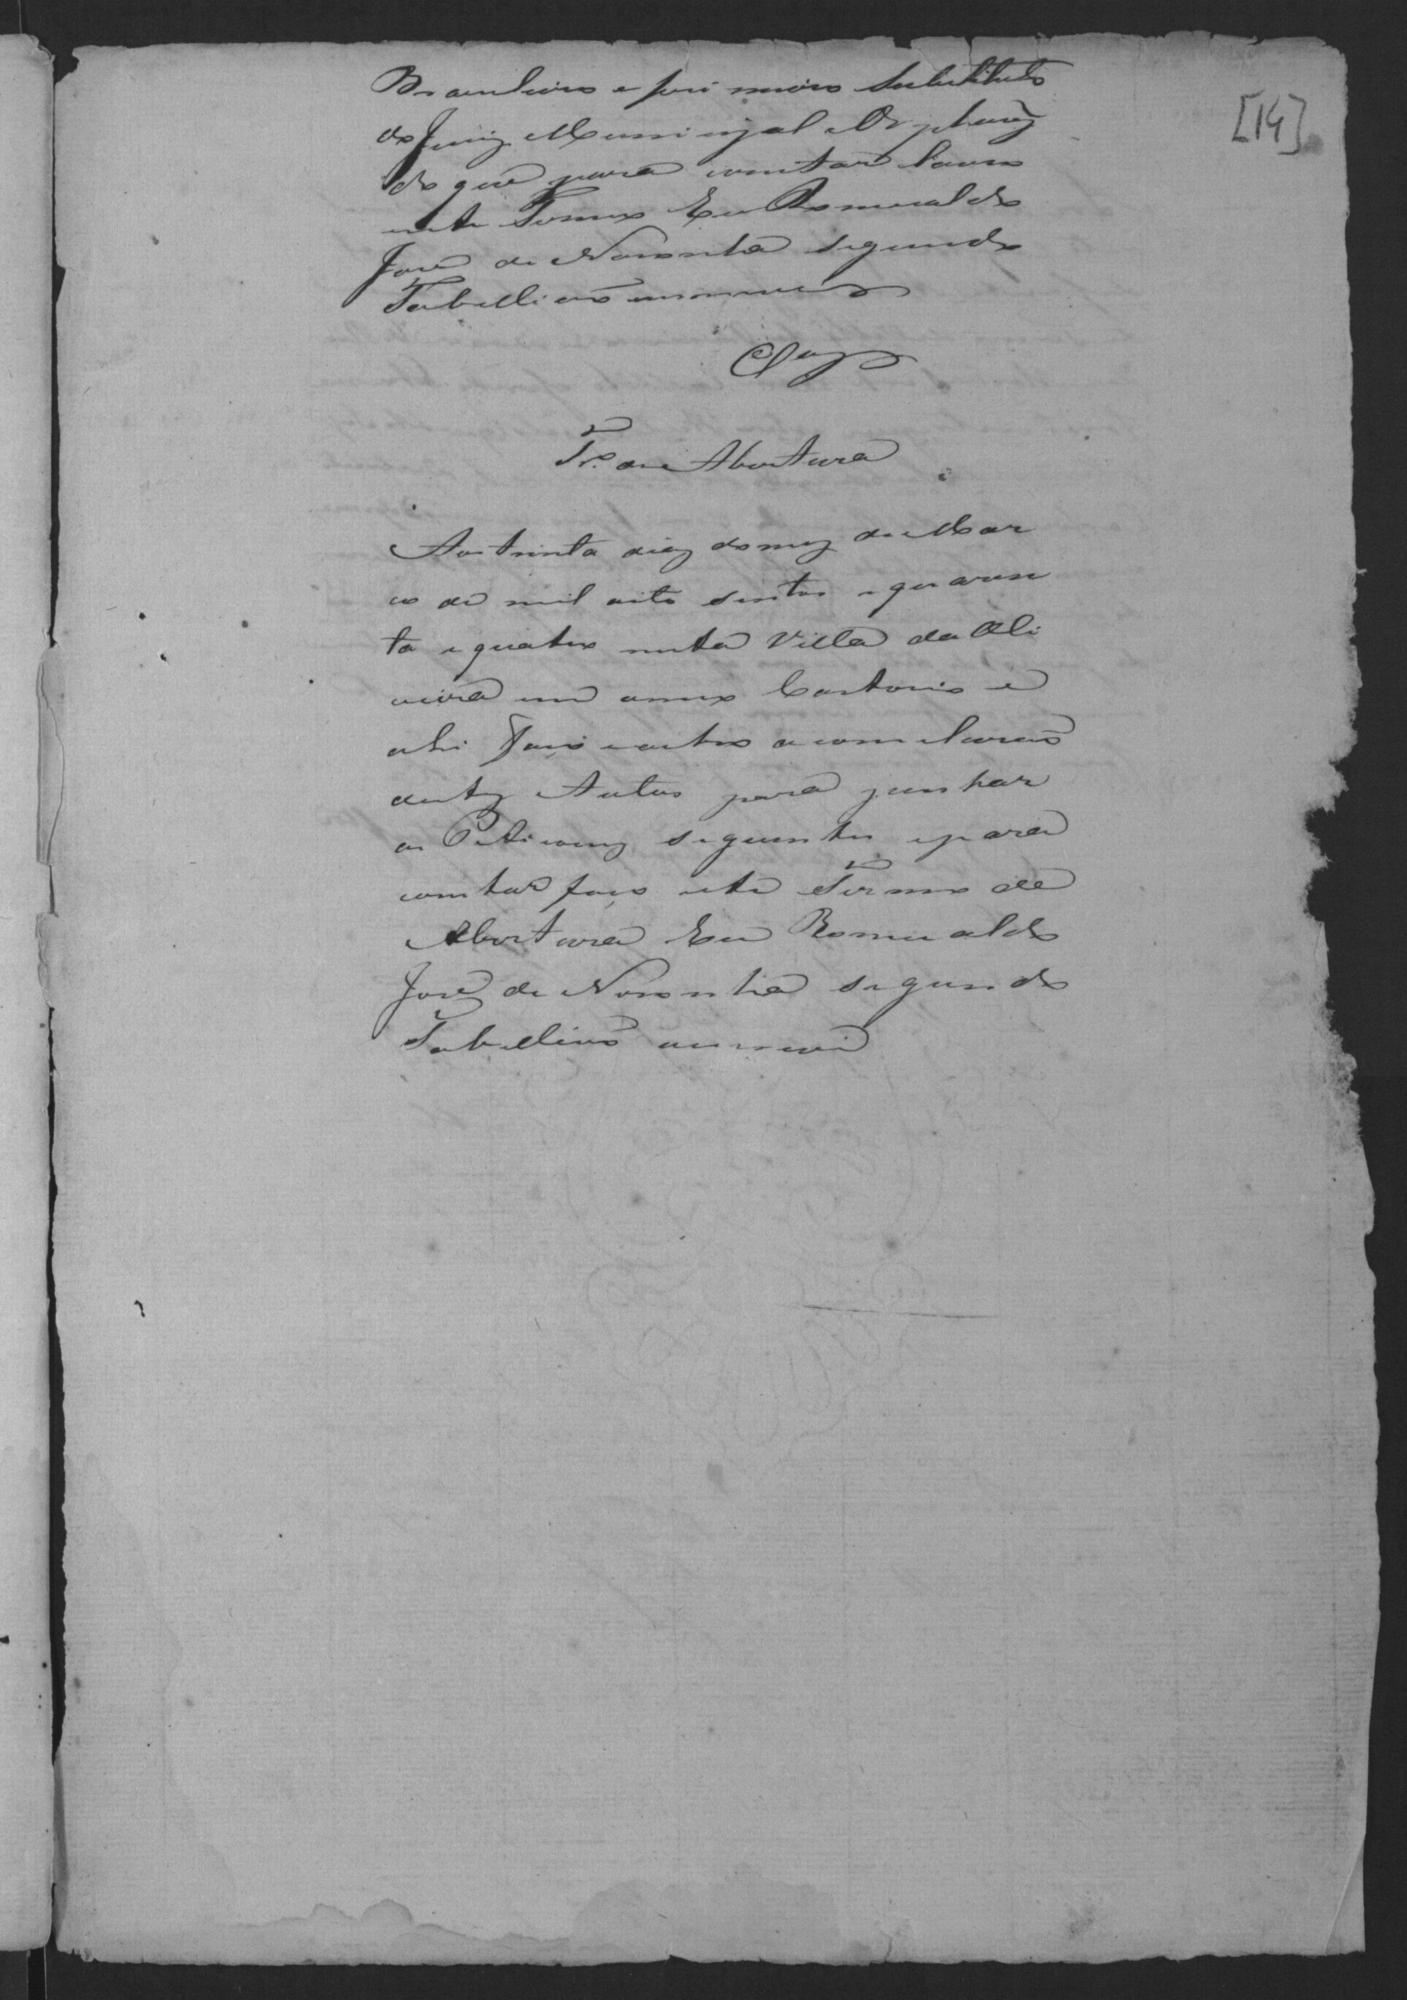 [14]
Brasileiro e primeiro Substituto
do Juiz Municipal e Orphaõs
do que para constar Lavro
este Termo Eu Romualdo
José de Noronha segundo
Tabelliaõ escrevi
Clos
Tr.o de Abertura
Aos trinta dias do mez de Mar
co de mil oito sentos e quaren
ta e quatro nesta Villa da Oli
veira em o meu Cartorio e
ahi Faço este a concluzaõ
destes Autos para juntar
as Peticoens seguintes e para
constar faço este Termo de
Abertura Eu Romualdo
José de Noronha segundo
Tabelliaõ escrevi